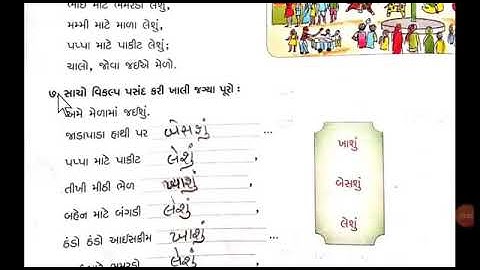 ભાઈ માટે ભમરડો લેશું,
મમ્મી માટે માળા લેશું,
પપ્પા માટે પાકીટ લેશું;
ચાલો, જોવા જઈએ મેળો.
૭. સાચો વિકલ્પ પસંદ કરી ખાલી જગ્યા પૂરો :
અમે મેળામાં જઈશું.
જાડાપાડા હાથી પર બેસશું ...
પપ્પા માટે પાકીટ લેશું,
તીખી મીઠી ભેળ ખાશું,
બહેન માટે બંગડી લેશું,
ઠંડો ઠંડો આઈસક્રીમ ખાશું,
ભમરડો લેશું
ખાશું
બેસશું
લેશું